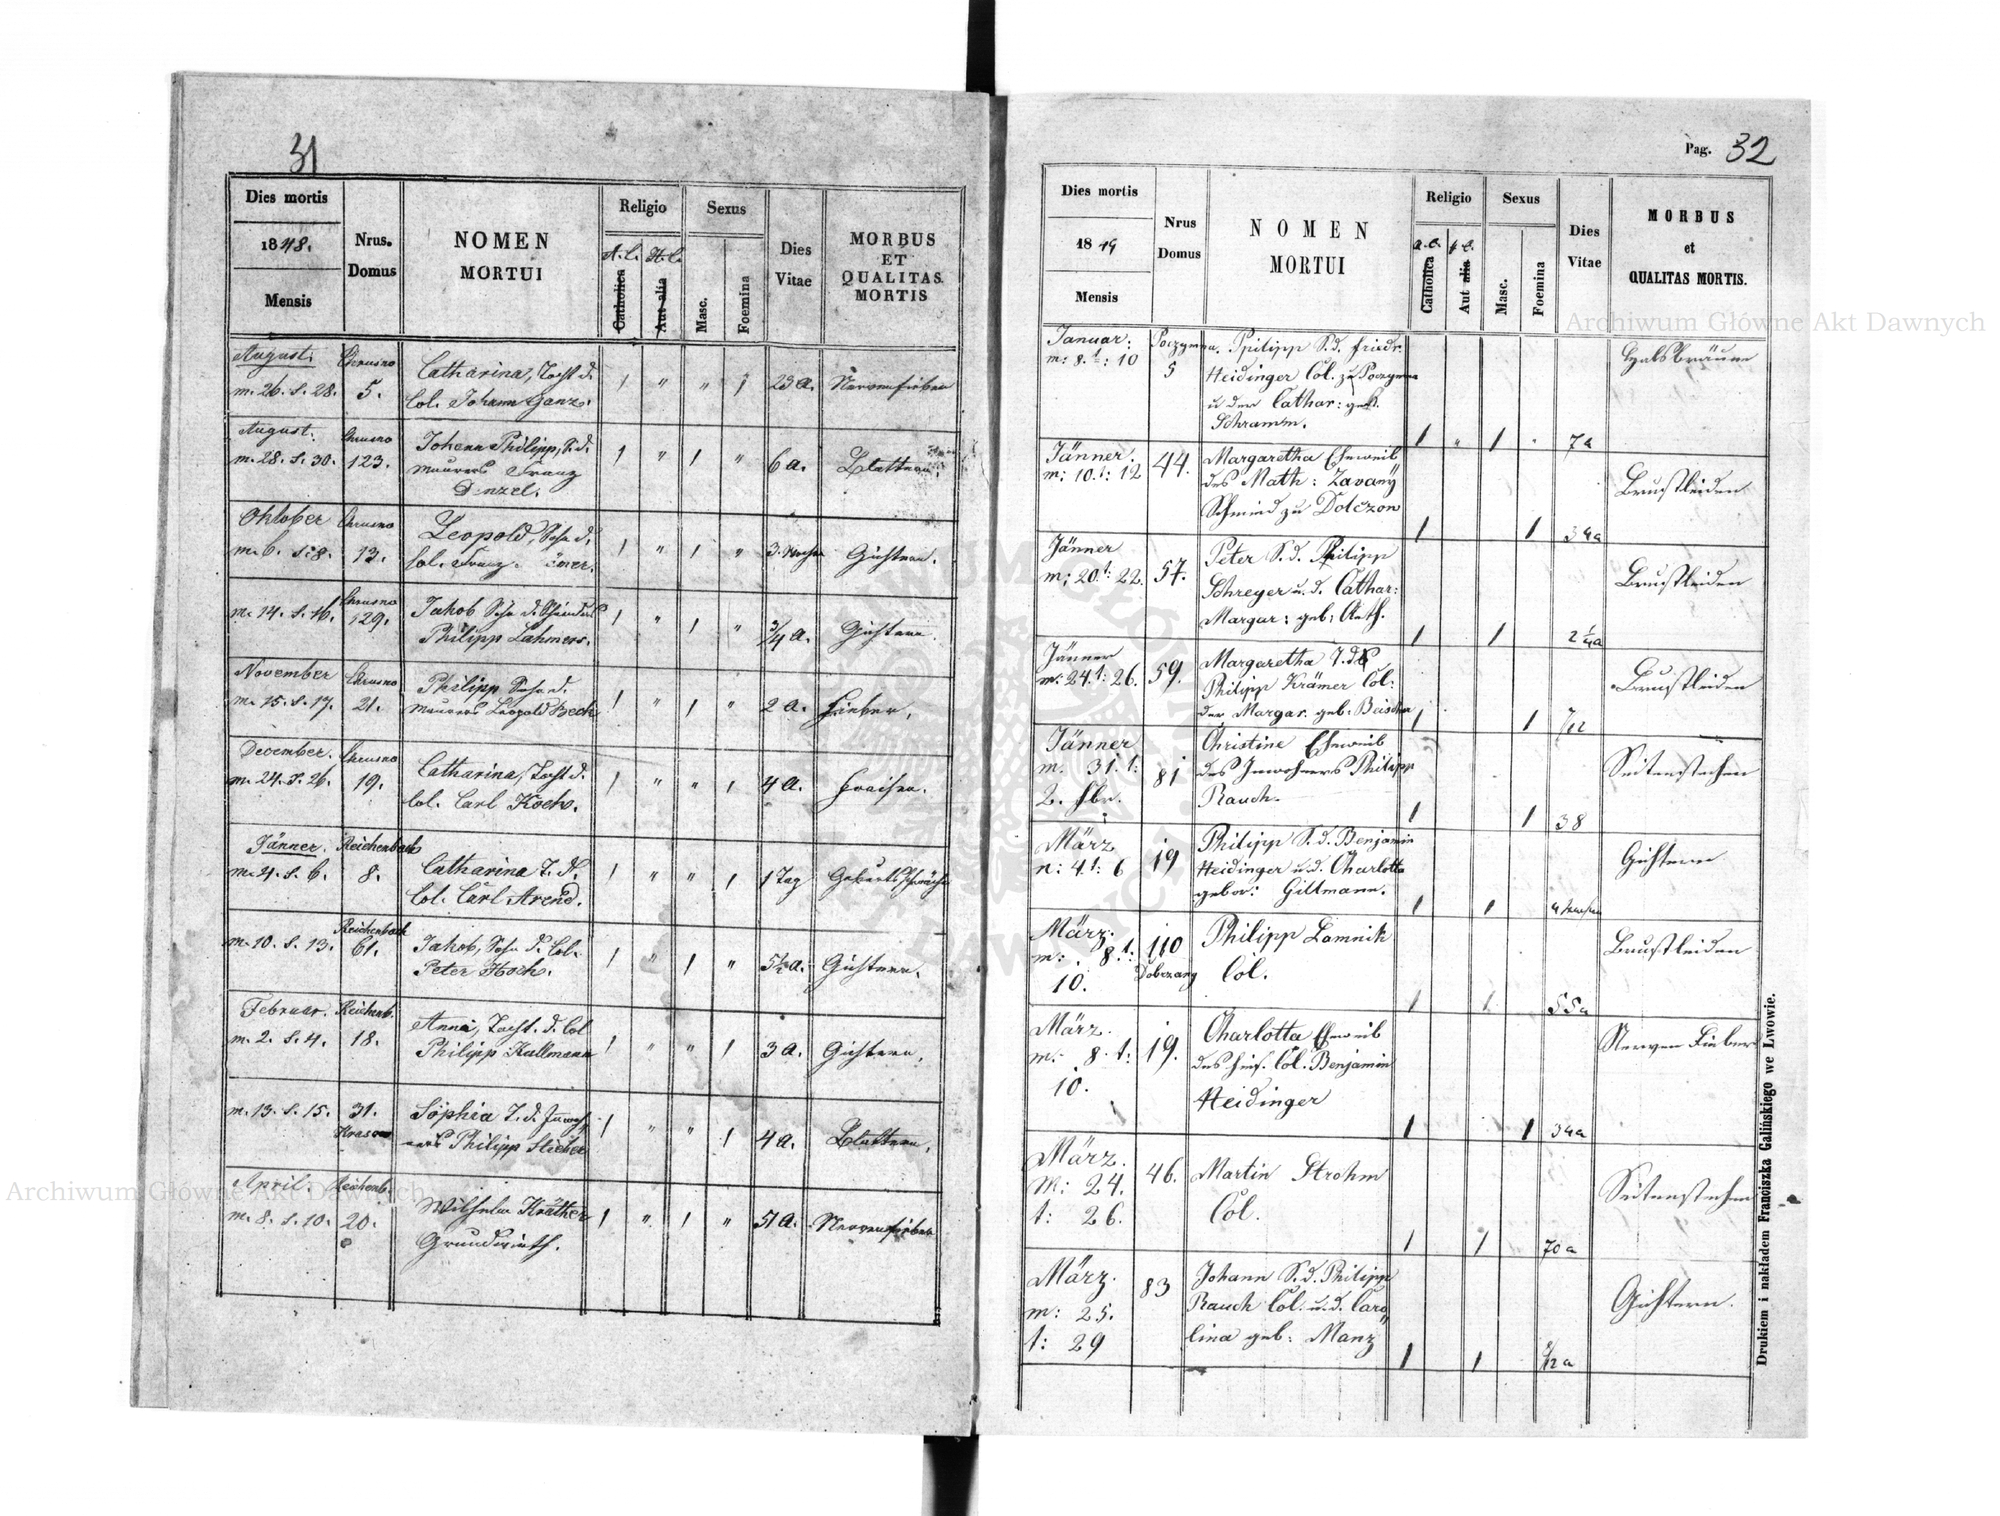 31
Dies mortis
1848.
Mensis
Nrus.
Domus
NOMEN
MORTUI
Religio
A. C.
H. C.
Catholica
Aut alia
Sexus
Masc.
Foemina
Dies
Vitae
MORBUS
ET
QUALITAS
MORTIS
August. Chrusno
m. 26. s. 28. 5.
Catharina, Tocht. d.
Col. Johann Ganz.
1 " " 1 23 a. Nervenfieber
August. Chrusno
m. 28. s. 30. 123.
Johann Philipp, S. d.
Maurers Franz
Denzel.
1 " 1 " 6 a. Blattern
Oktober Chrusno
m. 6. s. 8. 13.
Leopold, Sohn d.
Col. Franz
1 " 1 " 3. Wochen Gichtern.
Chrusno
m. 14. s. 16. 129.
Jakob Sohn d.
Philipp Lahmers.
1 " 1 " 3/4 a. Gichtern.
November Chrusno
m. 15. s. 17. 21.
Philipp Sohn d.
Maurers Leopold Bech
1 " 1 " 2 a. Fieber.
December. Chrusno
m. 24. s. 26. 19.
Catharina, Tocht. d.
Col. Carl Koch.
1 " " 1 4 a. Fraisen.
Jänner. Reichenbach
m. 4. s. 6. 8.
Catharina T. d.
Col. Carl Arend.
1 " " 1 1 Tag Geburtsschwäche
Reichenbach
m. 10. s. 13. 61.
Jakob, Sohn d. Col.
Peter Koch.
1 " 1 " 5½ a. Gichtern.
Februar. Reichenb.
m. 2. s. 4. 18.
Anna, Tocht. d. Col
Philipp Kallmann
1 " " 1 3 a. Gichtern.
m. 13. s. 15. 31.
Krasow
Sophia T. d. Inwoh
ners Philipp Stieher
1 " " 1 4 a. Blattern.
April. Reichenb.
m. 8. s. 10. 20.
Wilhelm Käther
Grundwirth.
1 " 1 " 51 a. Nervenfieber
Pag. 32
Dies mortis
18 49
Mensis
Nrus
Domus
NOMEN
MORTUI
Religio
A. C.
H. C.
Catholica
Aut alia
Sexus
Masc.
Foemina
Dies
Vitae
MORBUS
et
QUALITAS MORTIS.
Januar:
m: 8. t: 10 5
Philipp S. d. Friedr.
Heidinger Col. zu
u der Cathar: geb.
Schramm.
1 " 1 " 7a
Halsbräune
Jänner.
m: 10. t: 12 44.
Margaretha Eheweib
des Math: Zavany
Schmied zu Dolczon
1 1 34a
Brustleiden
Jänner
m: 20. t: 22. 57.
Peter S. d. Philipp
Schreyer u. d. Cathar:
Margar: geb: Aeth.
1 1 2 ¼a
Brustleiden
Jänner
m: 24. t: 26. 59.
Margaretha T. d.
Philipp Krämer Col:
der Margar. geb.
1 1 7/12
Brustleiden
Jänner
m. 31. t: 81
2. Fbr.
Christine Eheweib
des Inwohners Philipp
Rauch.
1 1 38
Seitenstechen
März
m: 4. t: 6 19
Philipp S. d. Benjamin
Heidinger u. d. Charlotte
gebor: Gillmann.
1 1
Gichtern
März.
m: 8 t: 110
10. Dobrzany
Philipp Lomnik
Col.
1 1 55a
Brustleiden
März.
m: 8. t: 19.
10.
Charlotta Eheweib
des hies. Col. Benjamin
Heidinger
1 1 34a
Nerven Fieber
März.
m: 24. 46.
t: 26.
Martin Strohm
Col.
1 1 70a
Seitenstechen
März.
m: 25. 83
t: 29
Johann S. d. Philipp
Rauch Col. u. d. Caro
lina geb: Manz
1 1
Gichtern.
Drukiem i nakładem Franciszka Galińskiego we Lwowie.
Archiwum Główne Akt Dawnych
Archiwum Główne Akt Dawnych